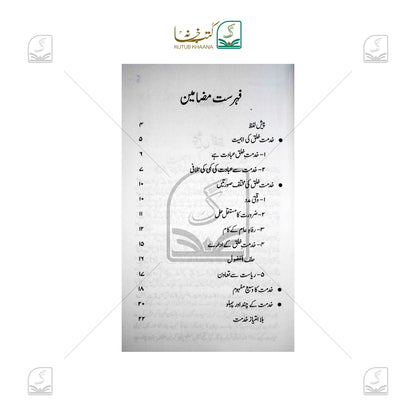 کتب خانہ
KUTUB KHAANA
فہرست مضامین
پیش لفظ ۴
● خدمت خلق کی اہمیت ۵
۱- خدمتِ خلق عبادت ہے ۶
۲- خدمت سے عبادت کی کمی کی تلافی ۷
● خدمت خلق کی مختلف صورتیں ۱۰
۱- وقتی مدد ۱۰
۲- ضرورت کا مستقل حل ۱۱
۳- رفاہِ عام کے کام ۱۳
۴- خدمتِ خلق کے ادارے ۱۵
حلف الفضول ۱۶
۵- ریاست سے تعاون ۱۷
● خدمت کا وسیع مفہوم ۱۸
● خدمت کے چند اور پہلو ۲۰
بلا امتیاز خدمت ۲۲